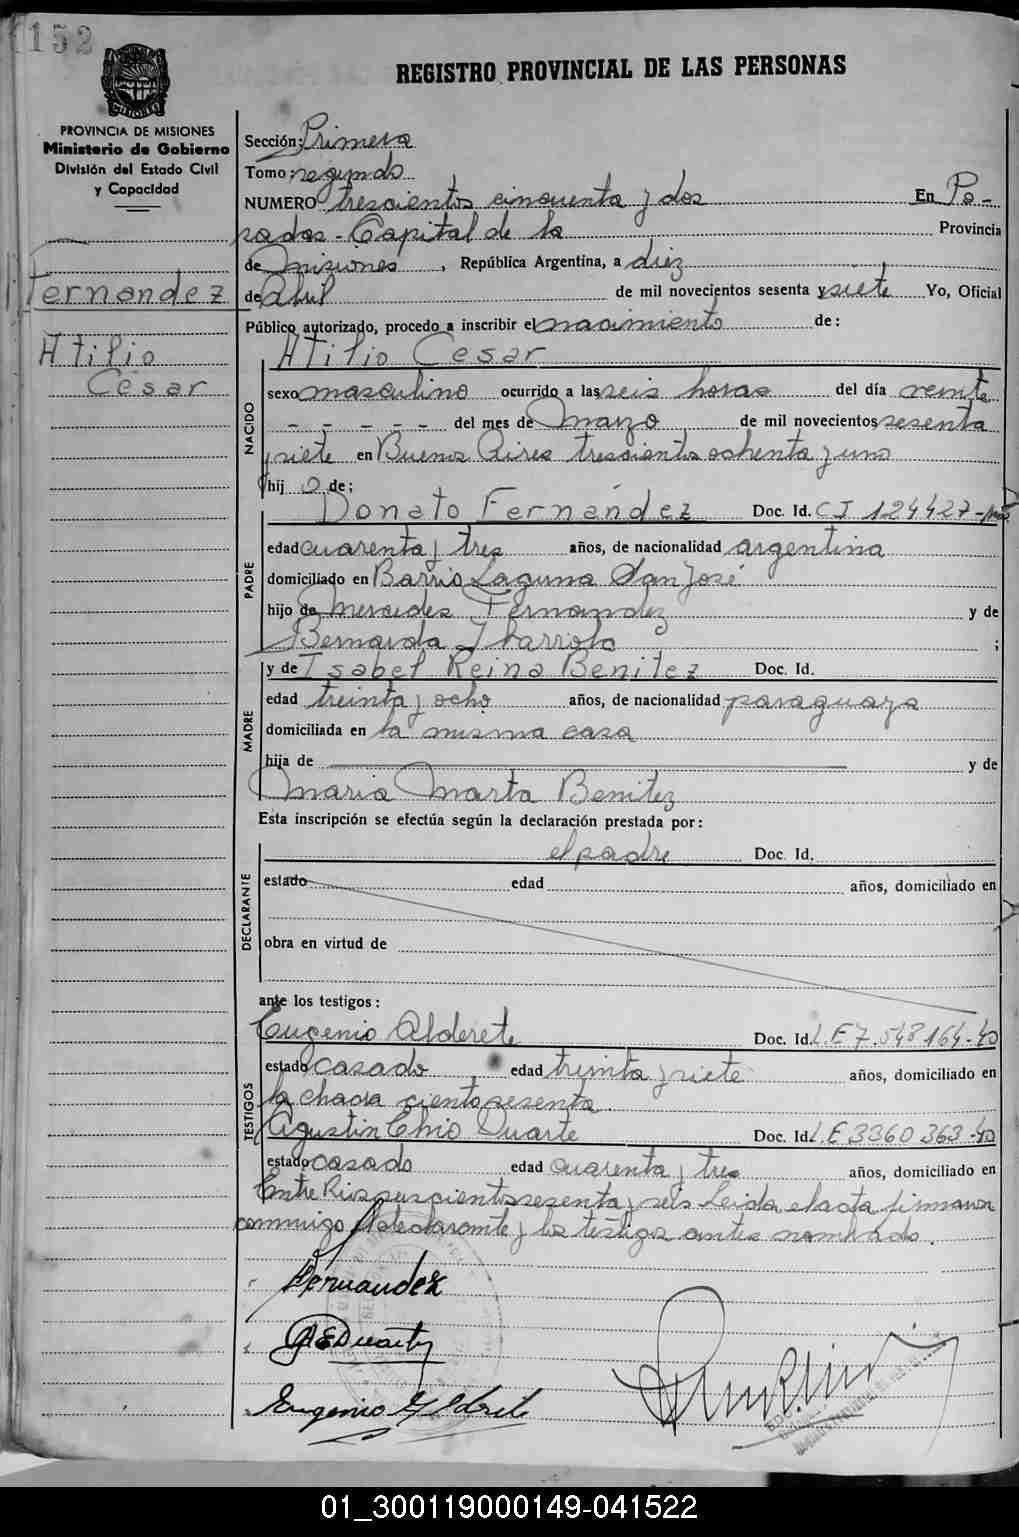 152
REGISTRO PROVINCIAL DE LAS PERSONAS
MISIONES
PROVINCIA DE MISIONES
Ministerio de Gobierno
División del Estado Civil
y Capacidad
Fernandez
Atilio
César
Sección: Primera
Tomo: segundo
NUMERO trescientos cincuenta y dos En Po-
sadas - Capital de la Provincia
de Misiones, República Argentina, a diez
de Abril de mil novecientos sesenta y siete Yo, Oficial
Público autorizado, procedo a inscribir el nacimiento de:
Atilio Cesar
NACIDO
sexo masculino ocurrido a las seis horas del día veinte
- - - - - del mes de Marzo de mil novecientos sesenta
y siete en Buenos Aires trescientos ochenta y uno
hij o de:
Donato Fernández Doc. Id. CI 124427-
PADRE
edad cuarenta y tres años, de nacionalidad argentina
domiciliado en Barrio Laguna San José
hijo de Mercedes Fernandez y de
Bernarda Ibarrola ;
y de Isabel Reina Benitez Doc. Id.
MADRE
edad treinta y ocho años, de nacionalidad paraguaya
domiciliada en la misma casa
hija de y de
Maria Marta Benitez
Esta inscripción se efectúa según la declaración prestada por:
el padre Doc. Id.
DECLARANTE
estado edad años, domiciliado en
obra en virtud de
ante los testigos:
Eugenio Alderete Doc. Id. L.E 7.548164-40
TESTIGOS
estado casado edad treinta y siete años, domiciliado en
la chacra ciento sesenta.
Agustin Duarte Doc. Id. L.E 3360363-40
estado casado edad cuarenta y tres años, domiciliado en
Entre Rios sesenta y seis Leida el acta firmaron
conmigo el declarante y los testigos antes nombrado.
Fernandez
Duarte
Eugenio Alderete
01_300119000149-041522